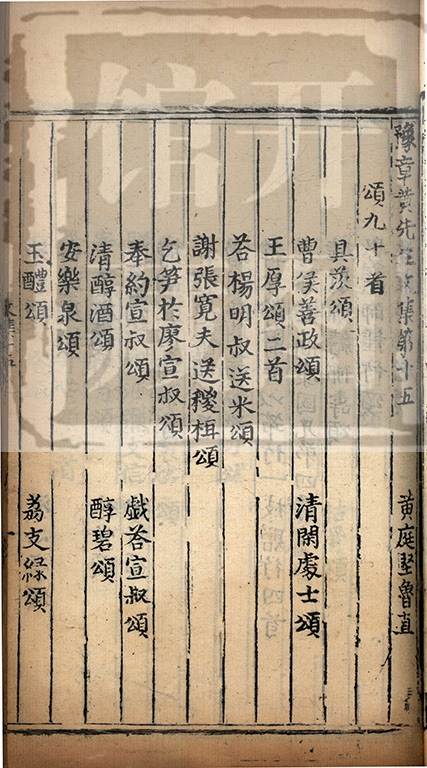 豫章黄先生文集第十五　黄庭堅魯直
頌九十首
具茨頌
曹侯善政頌　清閑處士頌
王厚頌二首
荅楊明叔送米頌
謝張寛夫送稷楫頌
乞笋於廖宣叔頌
奉約宣叔頌　戯荅宣叔頌
清醇酒頌　醇碧頌
安樂泉頌
玉醴頌　荔支緑頌